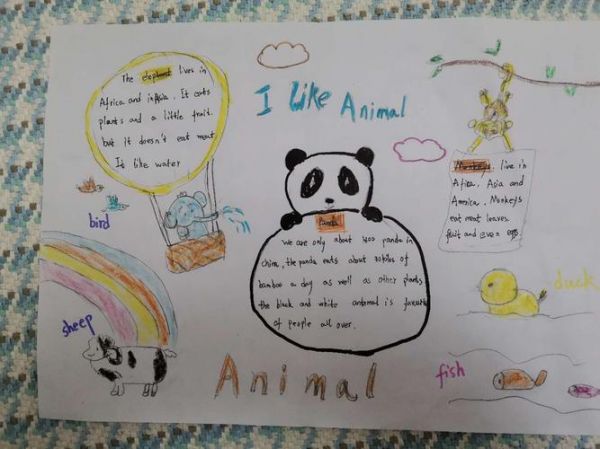 I like Animal
The elephant lives in
Africa and in Asia. It eats
plants and a little fruit.
but it doesn't eat meat
It like water
bird
sheep
Panda
we are only about 1200 panda in
china, the panda eats about kilos of
bamboo a day as well as other plants
the black and white antemal is favourite
of people all over.
Monkeys live in
Africa, Asia and
America. Monkeys
eat meat leaves
fruit and even eggs.
duck
fish
Animal